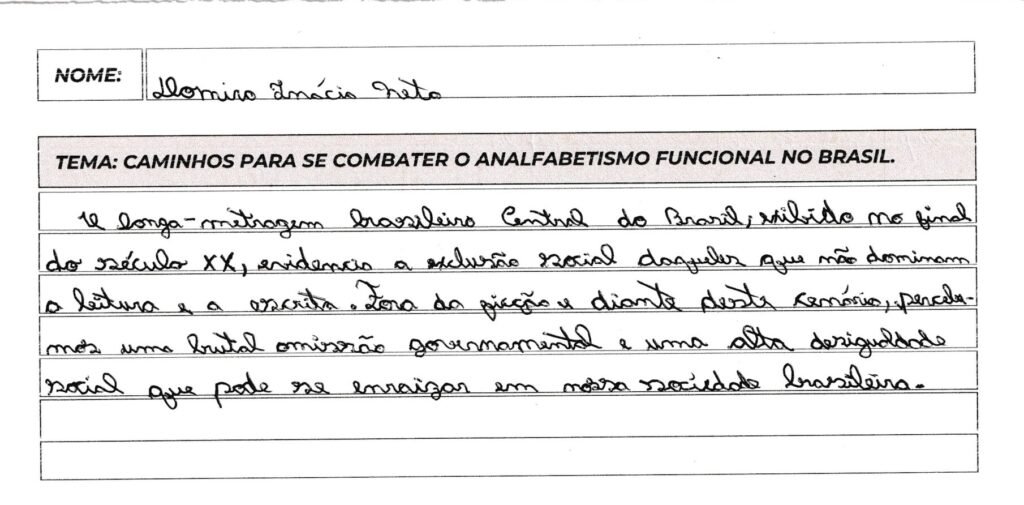 NOME:
Domiro Inácio Neto
TEMA: CAMINHOS PARA SE COMBATER O ANALFABETISMO FUNCIONAL NO BRASIL.
O longa-metragem brasileiro Central do Brasil, exibido no final
do século XX, evidencia a exclusão social daqueles que não dominam
a leitura e a escrita. Fora da ficção e diante deste cenário, percebe-
mos uma brutal omissão governamental e uma alta desigualdade
social que pode se enraizar em nossa sociedade brasileira.